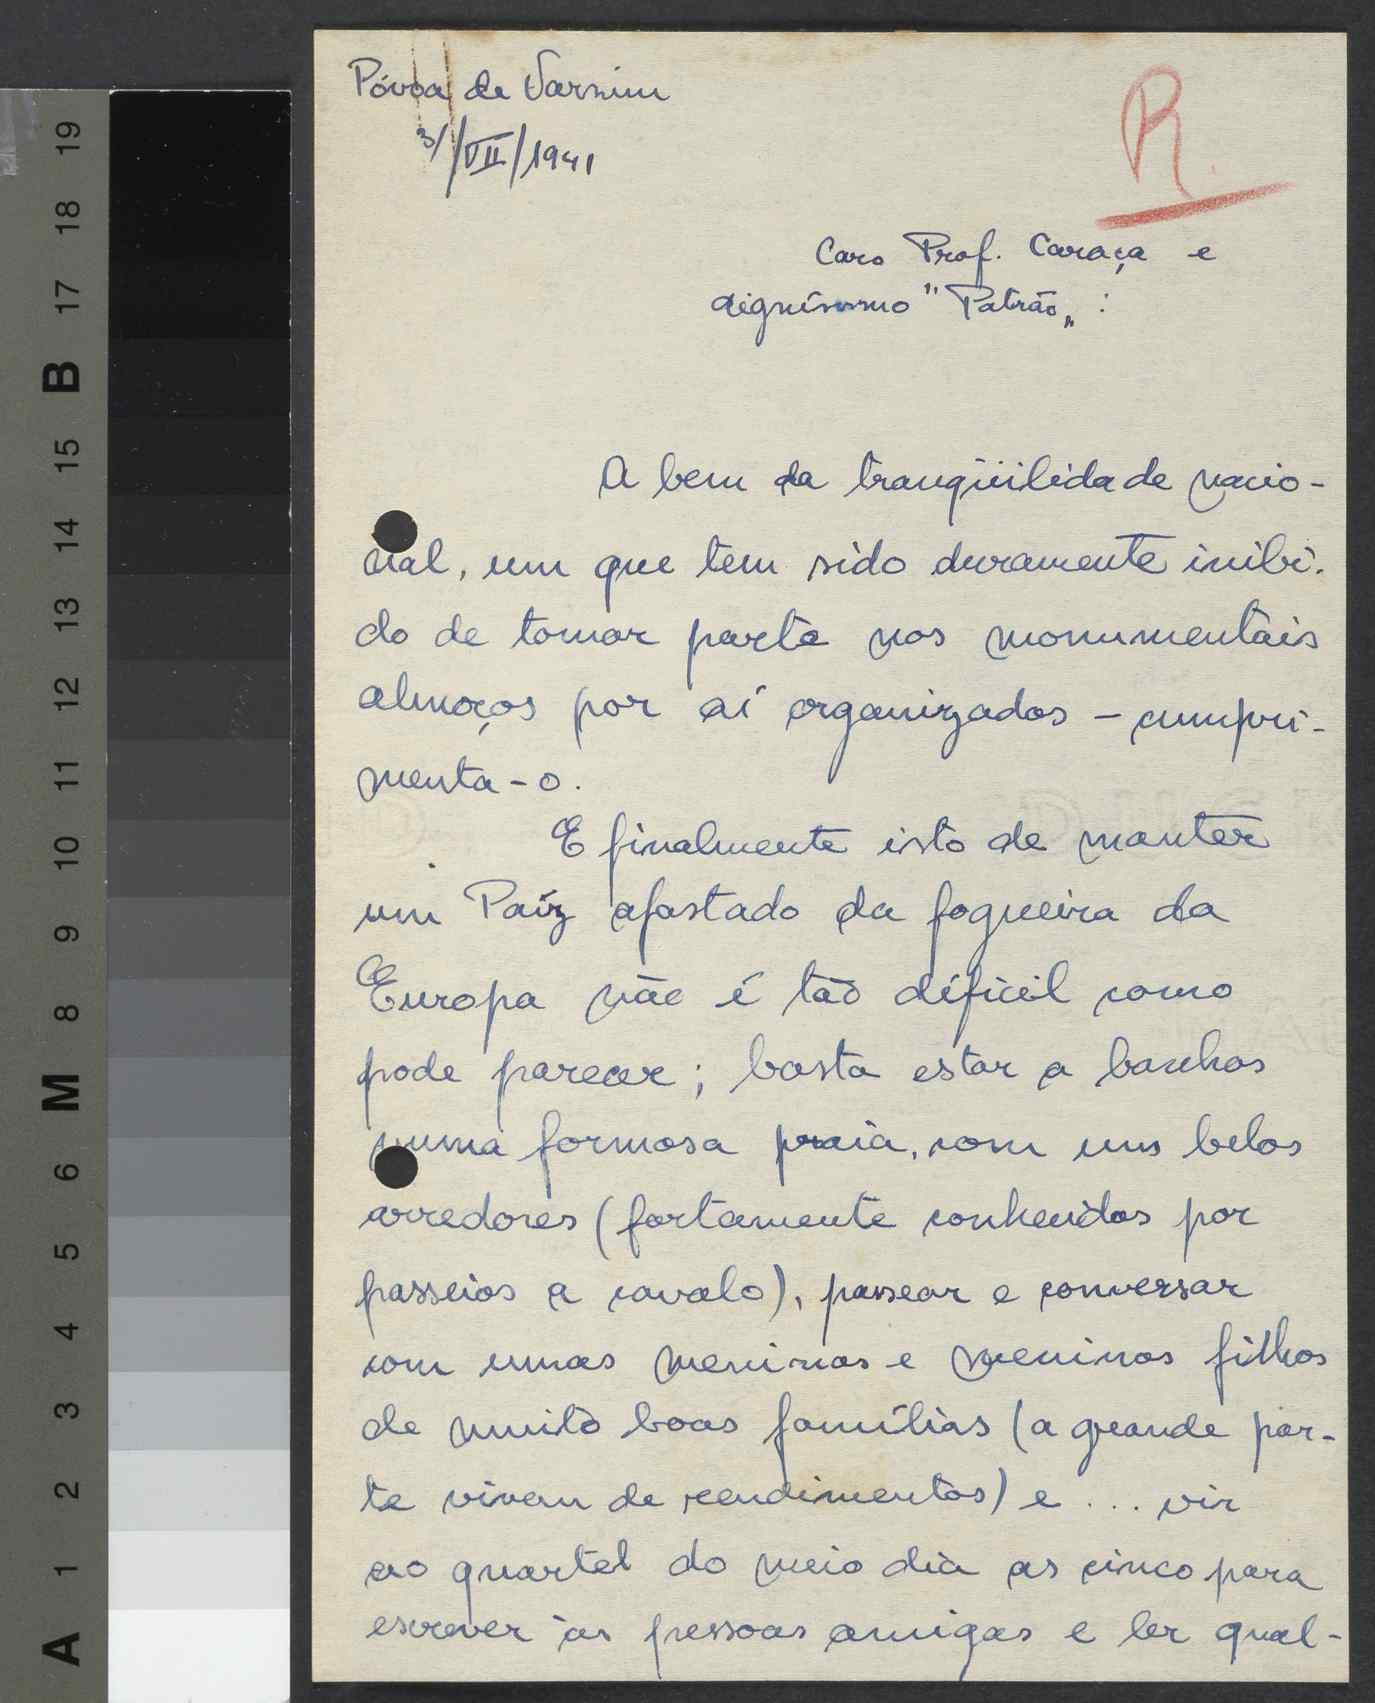 Póvoa de Varzim
3/VII/1941
R.
Caro Prof. Caraça e
digníssimo "Patrão„ :
A bem da tranqüilidade nacio-
nal, um que tem sido duramente inibi-
do de tomar parte nos monumentais
almoços por aí organizados – cumpri-
menta-o.
E finalmente isto de manter
um Paíz afastado da fogueira da
Europa não é tão difícil como
pode parecer; basta estar a banhos
numa formosa praia, com uns belos
arredores (fortemente conhecidos por
passeios a cavalo), passear e conversar
com umas meninas e meninos filhos
de muito boas famílias (a grande par-
te vivem de rendimentos) e ... vir
ao quartel do meio dia às cinco para
escrever às pessoas amigas e ler qual-
A 1 2 3 4 5 6 M 8 9 10 11 12 13 14 15 B 17 18 19